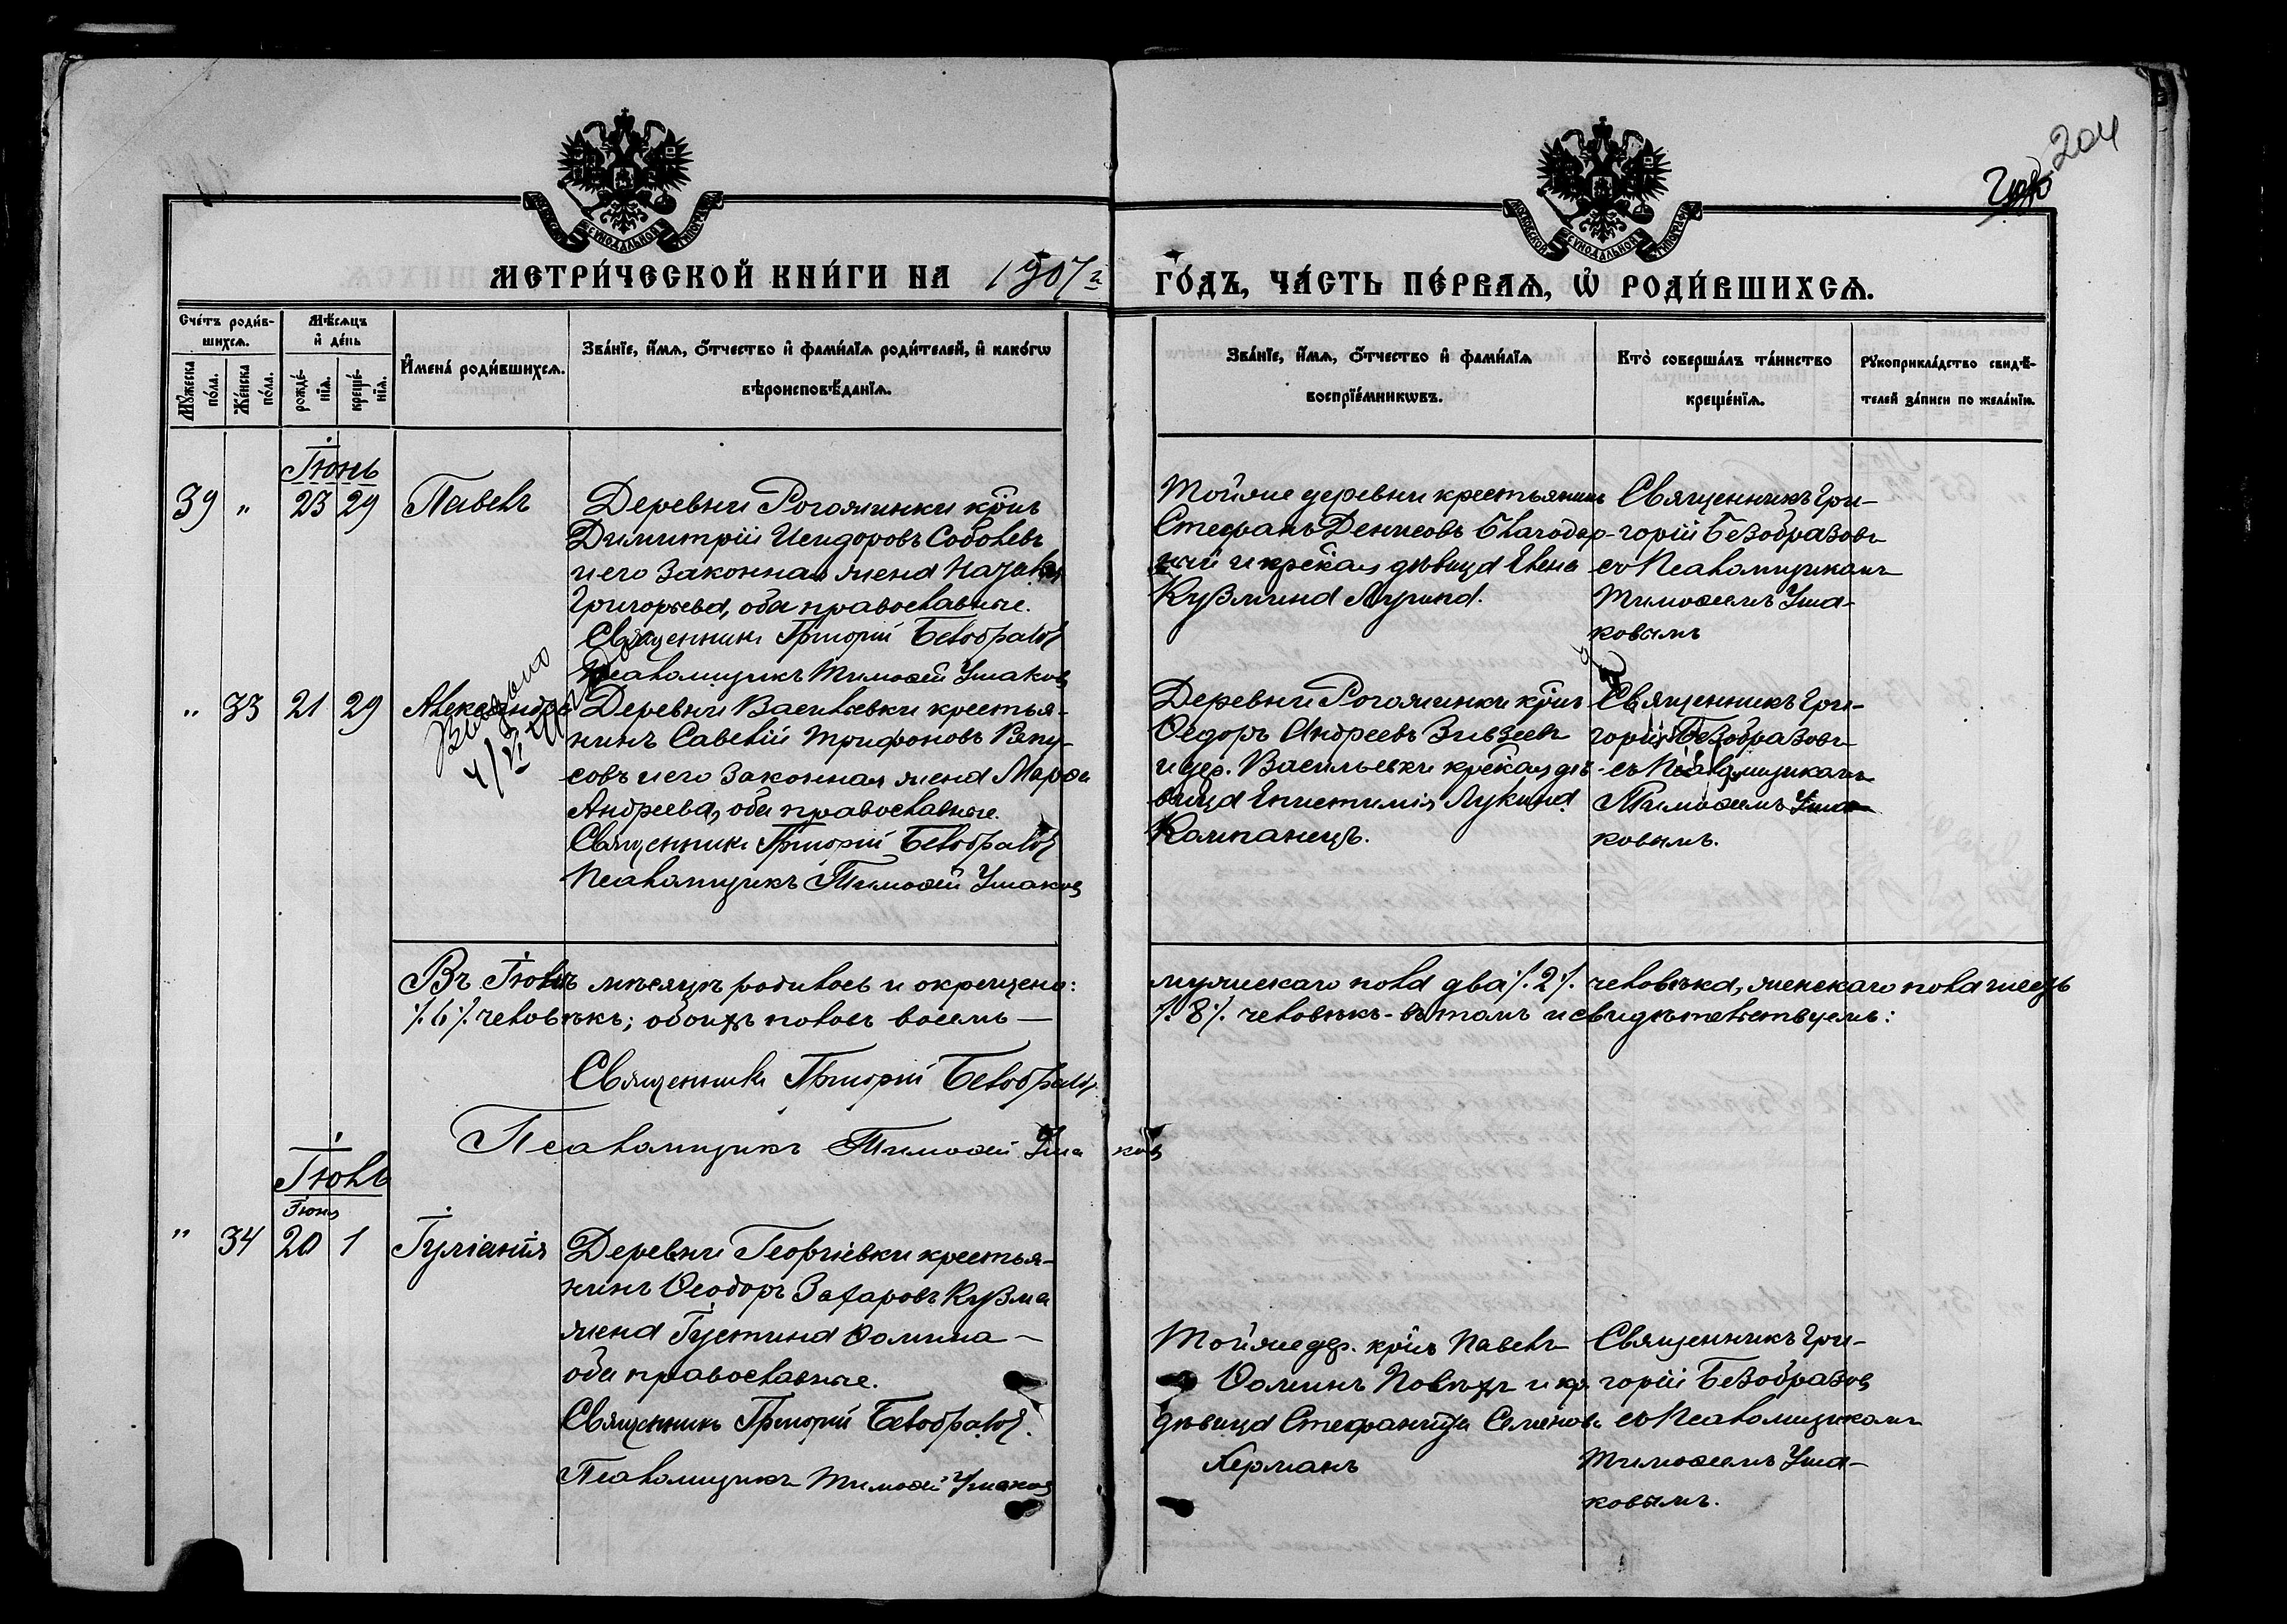 204
МОСКОВСКОЙ СѴНОДАЛЬНОЙ ТИПОГРАФІИ
МОСКОВСКОЙ СѴНОДАЛЬНОЙ ТИПОГРАФІИ
МЕТРИ́ЧЕСКОЙ КНИ́ГИ НА 1907 г.
ГО́ДЪ, ЧА́СТЬ ПЕ́РВАѦ, Ѡ҆ РОДИ́ВШИХСѦ.
Сче́тъ роди́в-
шихсѧ.
Мѣ́сѧцъ
и҆ де́нь
Мꙋ́жеска по́ла.
Же́нска по́ла.
рожде́-
нїѧ.
креще́-
нїѧ.
И҆мена̀ роди́вшихсѧ.
Зва́нїе, и҆́мѧ, ѻ҆́тчество и҆ фами́лїѧ роди́телей, и҆ како́гѡ
вѣроисповѣ́данїѧ.
Зва́нїе, и҆́мѧ, ѻ҆́тчество и҆ фами́лїѧ
воспрїе́мникѡвъ.
Кто̀ соверша́лъ та́инство
креще́нїѧ.
Рꙋкоприкла́дство свидѣ́-
телей за́писи по жела́нїю.
Іюнь
39 " 23 29 Павелъ
Деревни Рогожинки кр҃нъ
Димитрій Исидоровъ Соболевъ
и его законная жена
Григорьева, оба православные.
Священникъ Григорій Безобразовъ
Псаломщикъ Тимоѳей Ушаковъ
Тойже деревни крестьянинъ
Стефанъ Денисовъ Благодар-
ный и кр҃ская дѣвица Елена
Кузмина
Священникъ Гри-
горій Безобразовъ
съ Псаломщикомъ
Тимоѳеемъ Уша-
ковымъ
" 33 21 29 Александра
Деревни Васильевки крестья-
нинъ Савелій Трифоновъ
совъ и его законная жена Марѳа
Андреева, оба православные.
Священникъ Григорій Безобразовъ
Псаломщикъ Тимоѳей Ушаковъ
Деревни Рогожинки кр҃нъ
Ѳедоръ Андреевъ
и дер. Васильевки кр҃ская дѣ-
вица Епистимія Лукина
Компанецъ.
Священникъ Гри-
горій Безобразовъ
съ Псаломщикомъ
Тимоѳеемъ Уша-
ковымъ.
Въ Іюнѣ мѣсяцѣ родилось и окрещено:
мужескаго пола два ٪2٪ человѣка, женскаго пола шесть
٪6٪ человѣкъ; обоихъ половъ восемь —
٪8٪ человѣкъ - въ томъ и свидѣтельствуемъ:
Священникъ Григорій Безобразовъ
Псаломщикъ Тимоѳей Ушаковъ
Іюль
Іюня
" 34 20 1 Іуліанія
Деревни Георгіевки крестья-
нинъ Ѳеодоръ Захаровъ Кузма
жена Іустина Ѳомина —
оба православные.
Священникъ Григорій Безобразовъ.
Псаломщикъ Тимоѳей Ушаковъ
Тойже дер. кр҃нъ Павелъ
Ѳоминъ и кр.
дѣвица Стефанида Семенова
Херманъ
Священникъ Гри-
горій Безобразовъ
съ Псаломщикомъ
Тимоѳеемъ Уша-
ковымъ.